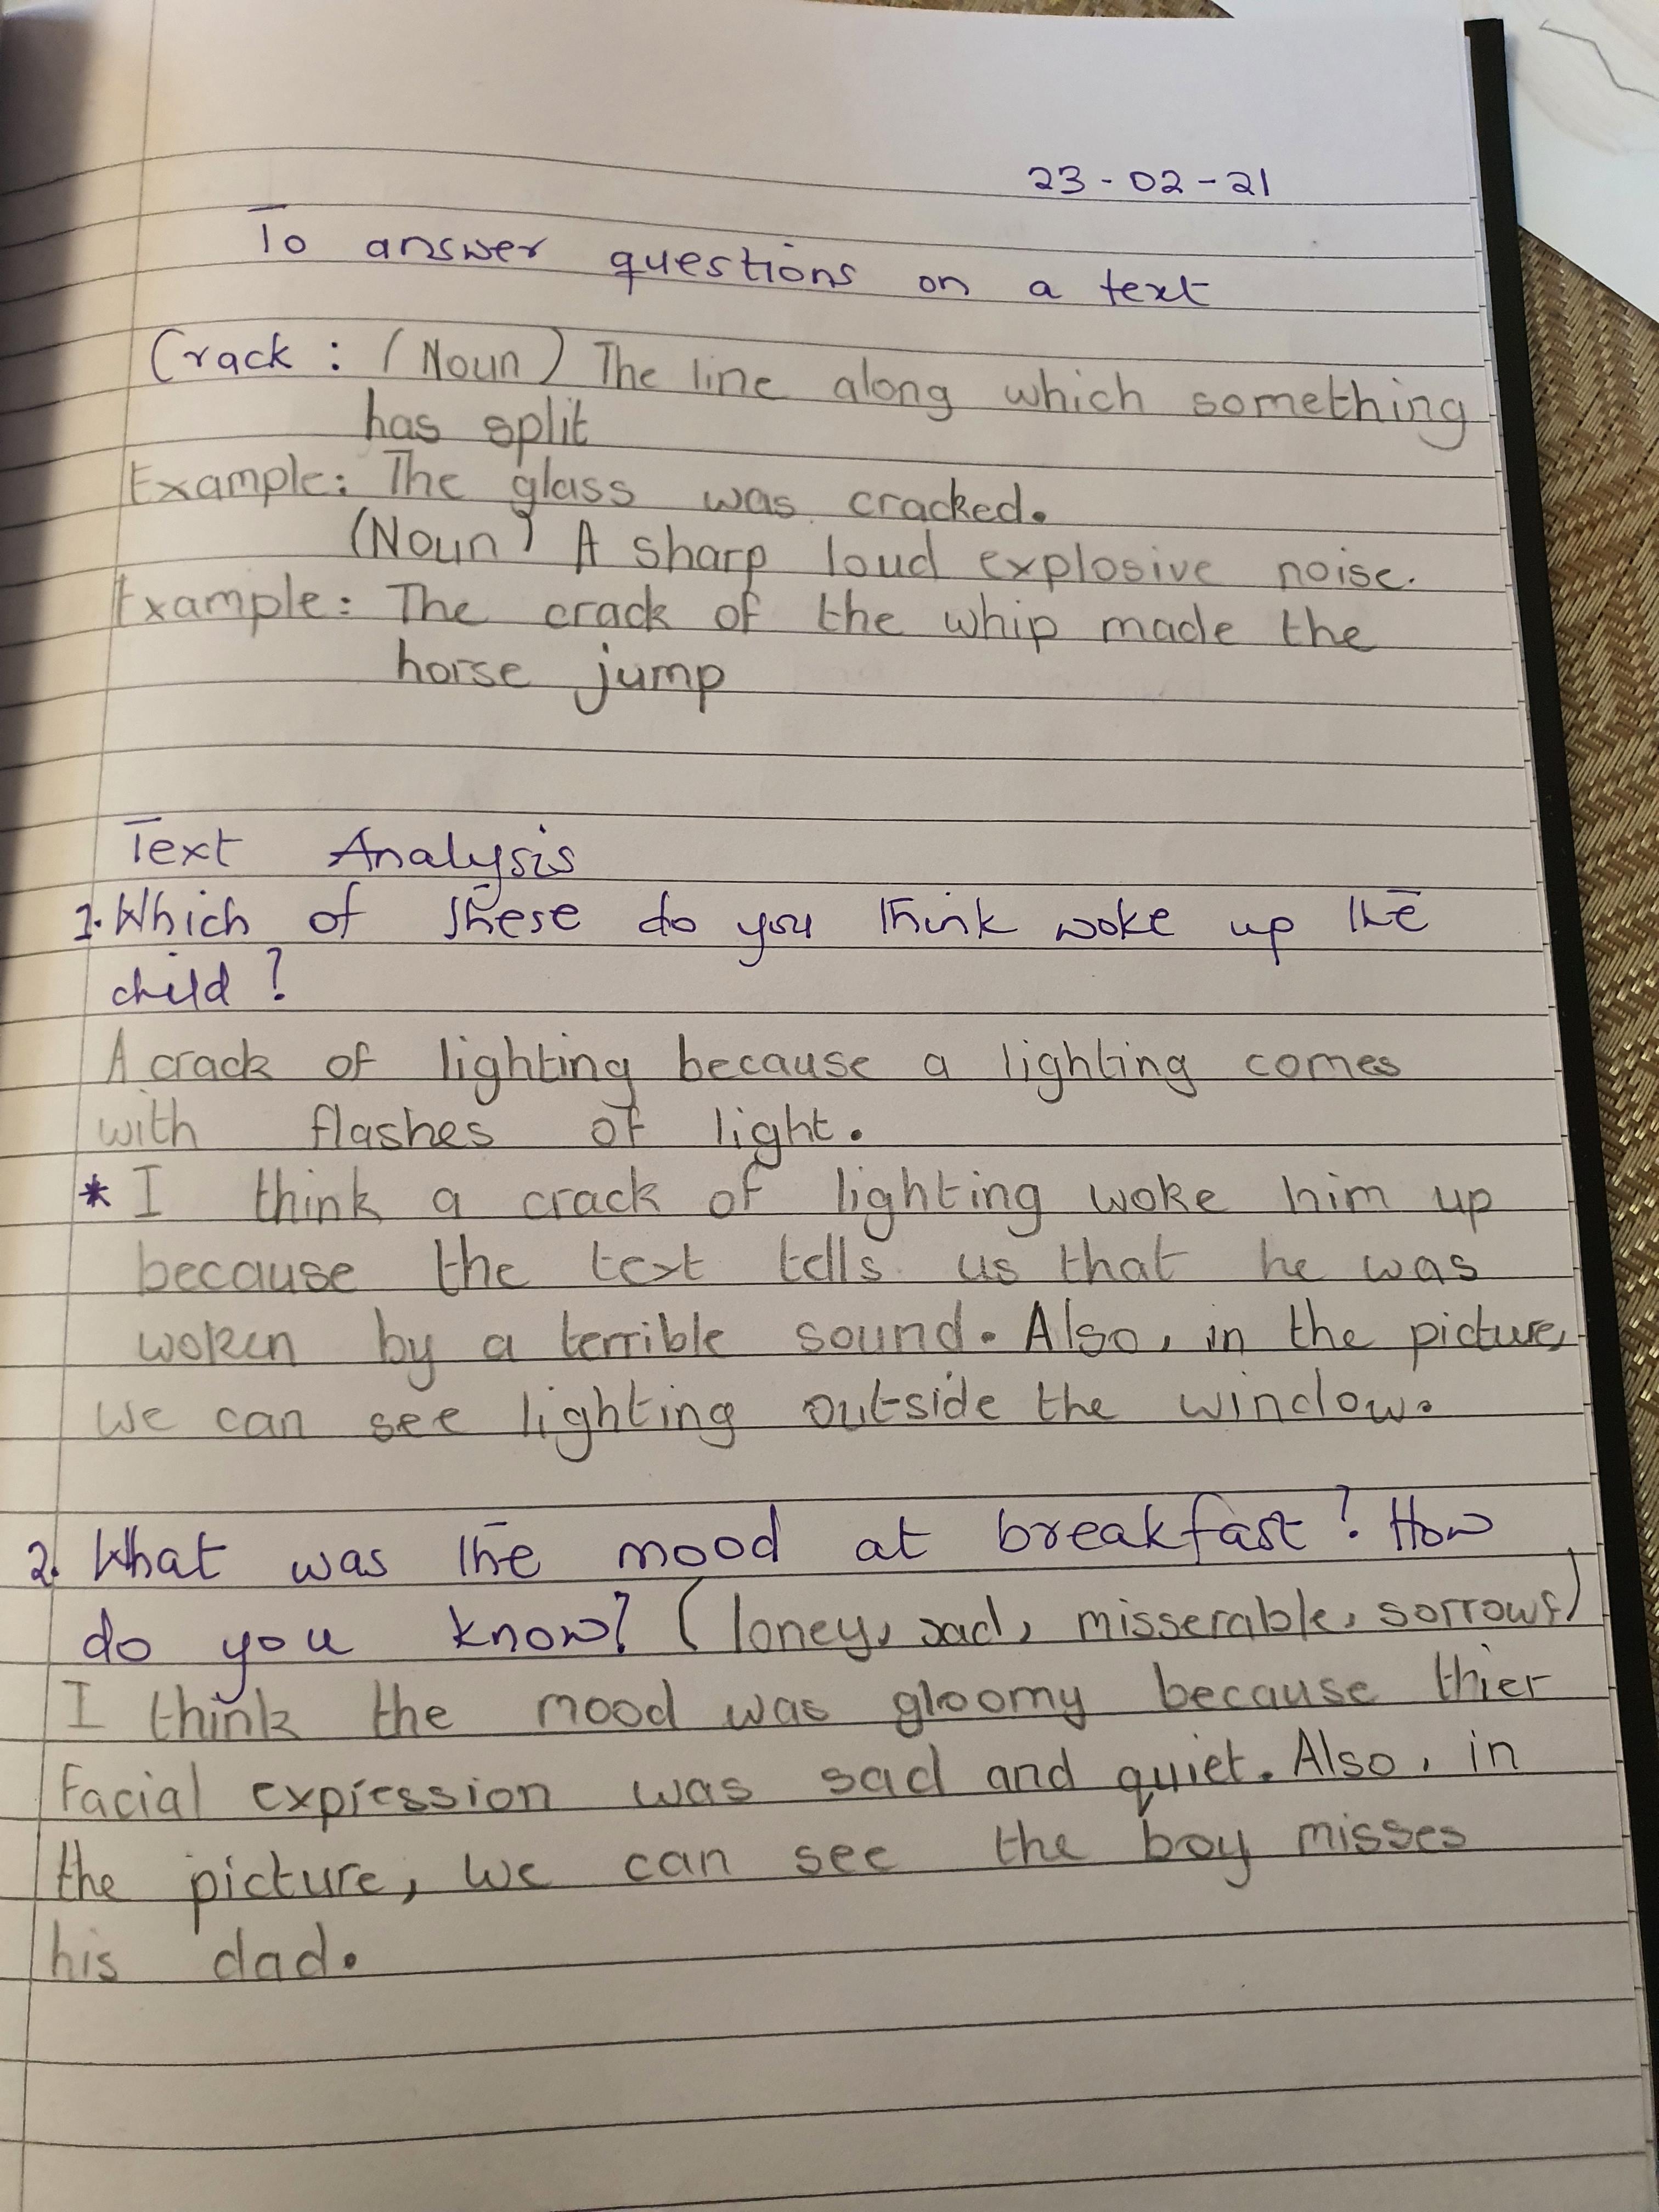 23-02-21
To answer questions on a text
Crack : (Noun) The line along which something
has split
Example: The glass was cracked.
(Noun) A sharp loud explosive noise.
Example: The crack of the whip made the
horse jump
Text Analysis
1. Which of these do you think woke up the
child?
A crack of lighting because a lighting comes
with flashes of light.
* I think a crack of lighting woke him up
because the text tells us that he was
woken by a terrible sound. Also, in the picture,
we can see lighting outside the window.
2. What was the mood at breakfast? How
do you know? (loney, sad, misserable, sorrows)
I think the mood was gloomy because thier
facial expression was sad and quiet. Also, in
the picture, we can see the boy misses
his dad.